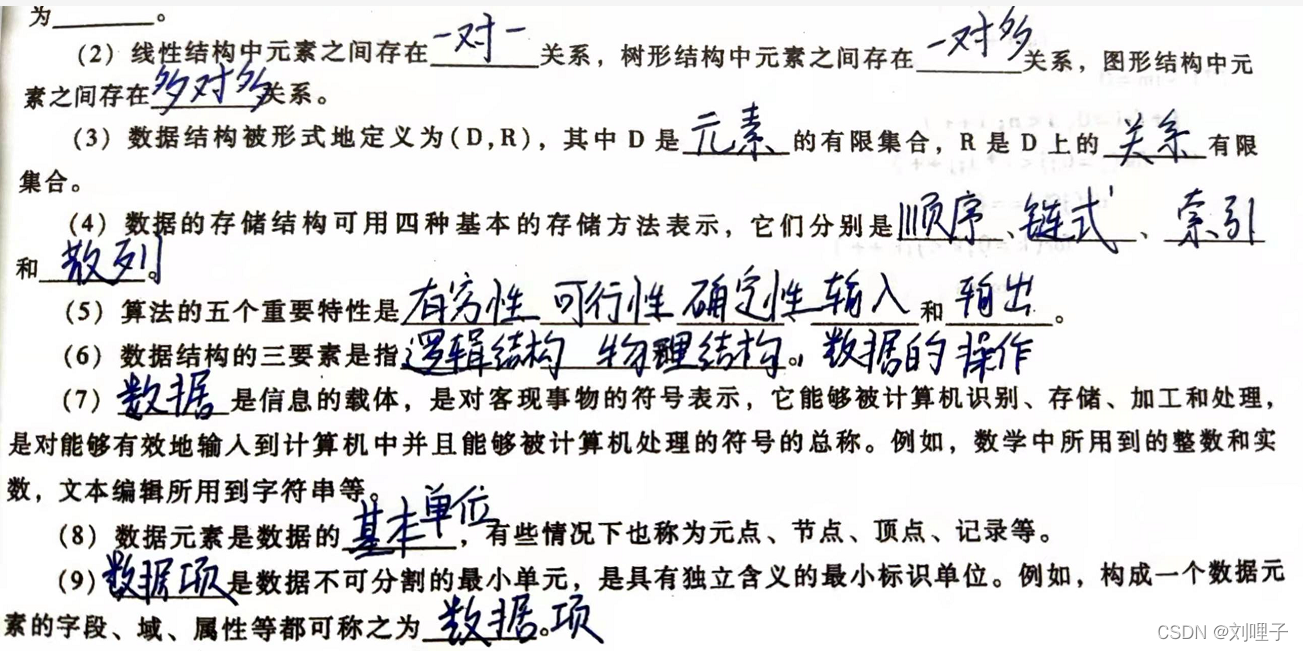 为______。
(2) 线性结构中元素之间存在一对一关系，树形结构中元素之间存在一对多关系，图形结构中元
素之间存在多对多关系。
(3) 数据结构被形式地定义为(D,R)，其中 D 是元素的有限集合，R 是 D 上的关系有限
集合。
(4) 数据的存储结构可用四种基本的存储方法表示，它们分别是顺序、链式、索引
和散列。
(5) 算法的五个重要特性是有穷性 可行性 确定性、输入和输出。
(6) 数据结构的三要素是指逻辑结构 物理结构。数据的操作
(7) 数据是信息的载体，是对客现事物的符号表示，它能够被计算机识别、存储、加工和处理，
是对能够有效地输入到计算机中并且能够被计算机处理的符号的总称。例如，数学中所用到的整数和实
数，文本编辑所用到字符串等。
(8) 数据元素是数据的基本单位，有些情况下也称为元点、节点、顶点、记录等。
(9) 数据项是数据不可分割的最小单元，是具有独立含义的最小标识单位。例如，构成一个数据元
素的字段、域、属性等都可称之为数据项。
CSDN @刘哩子